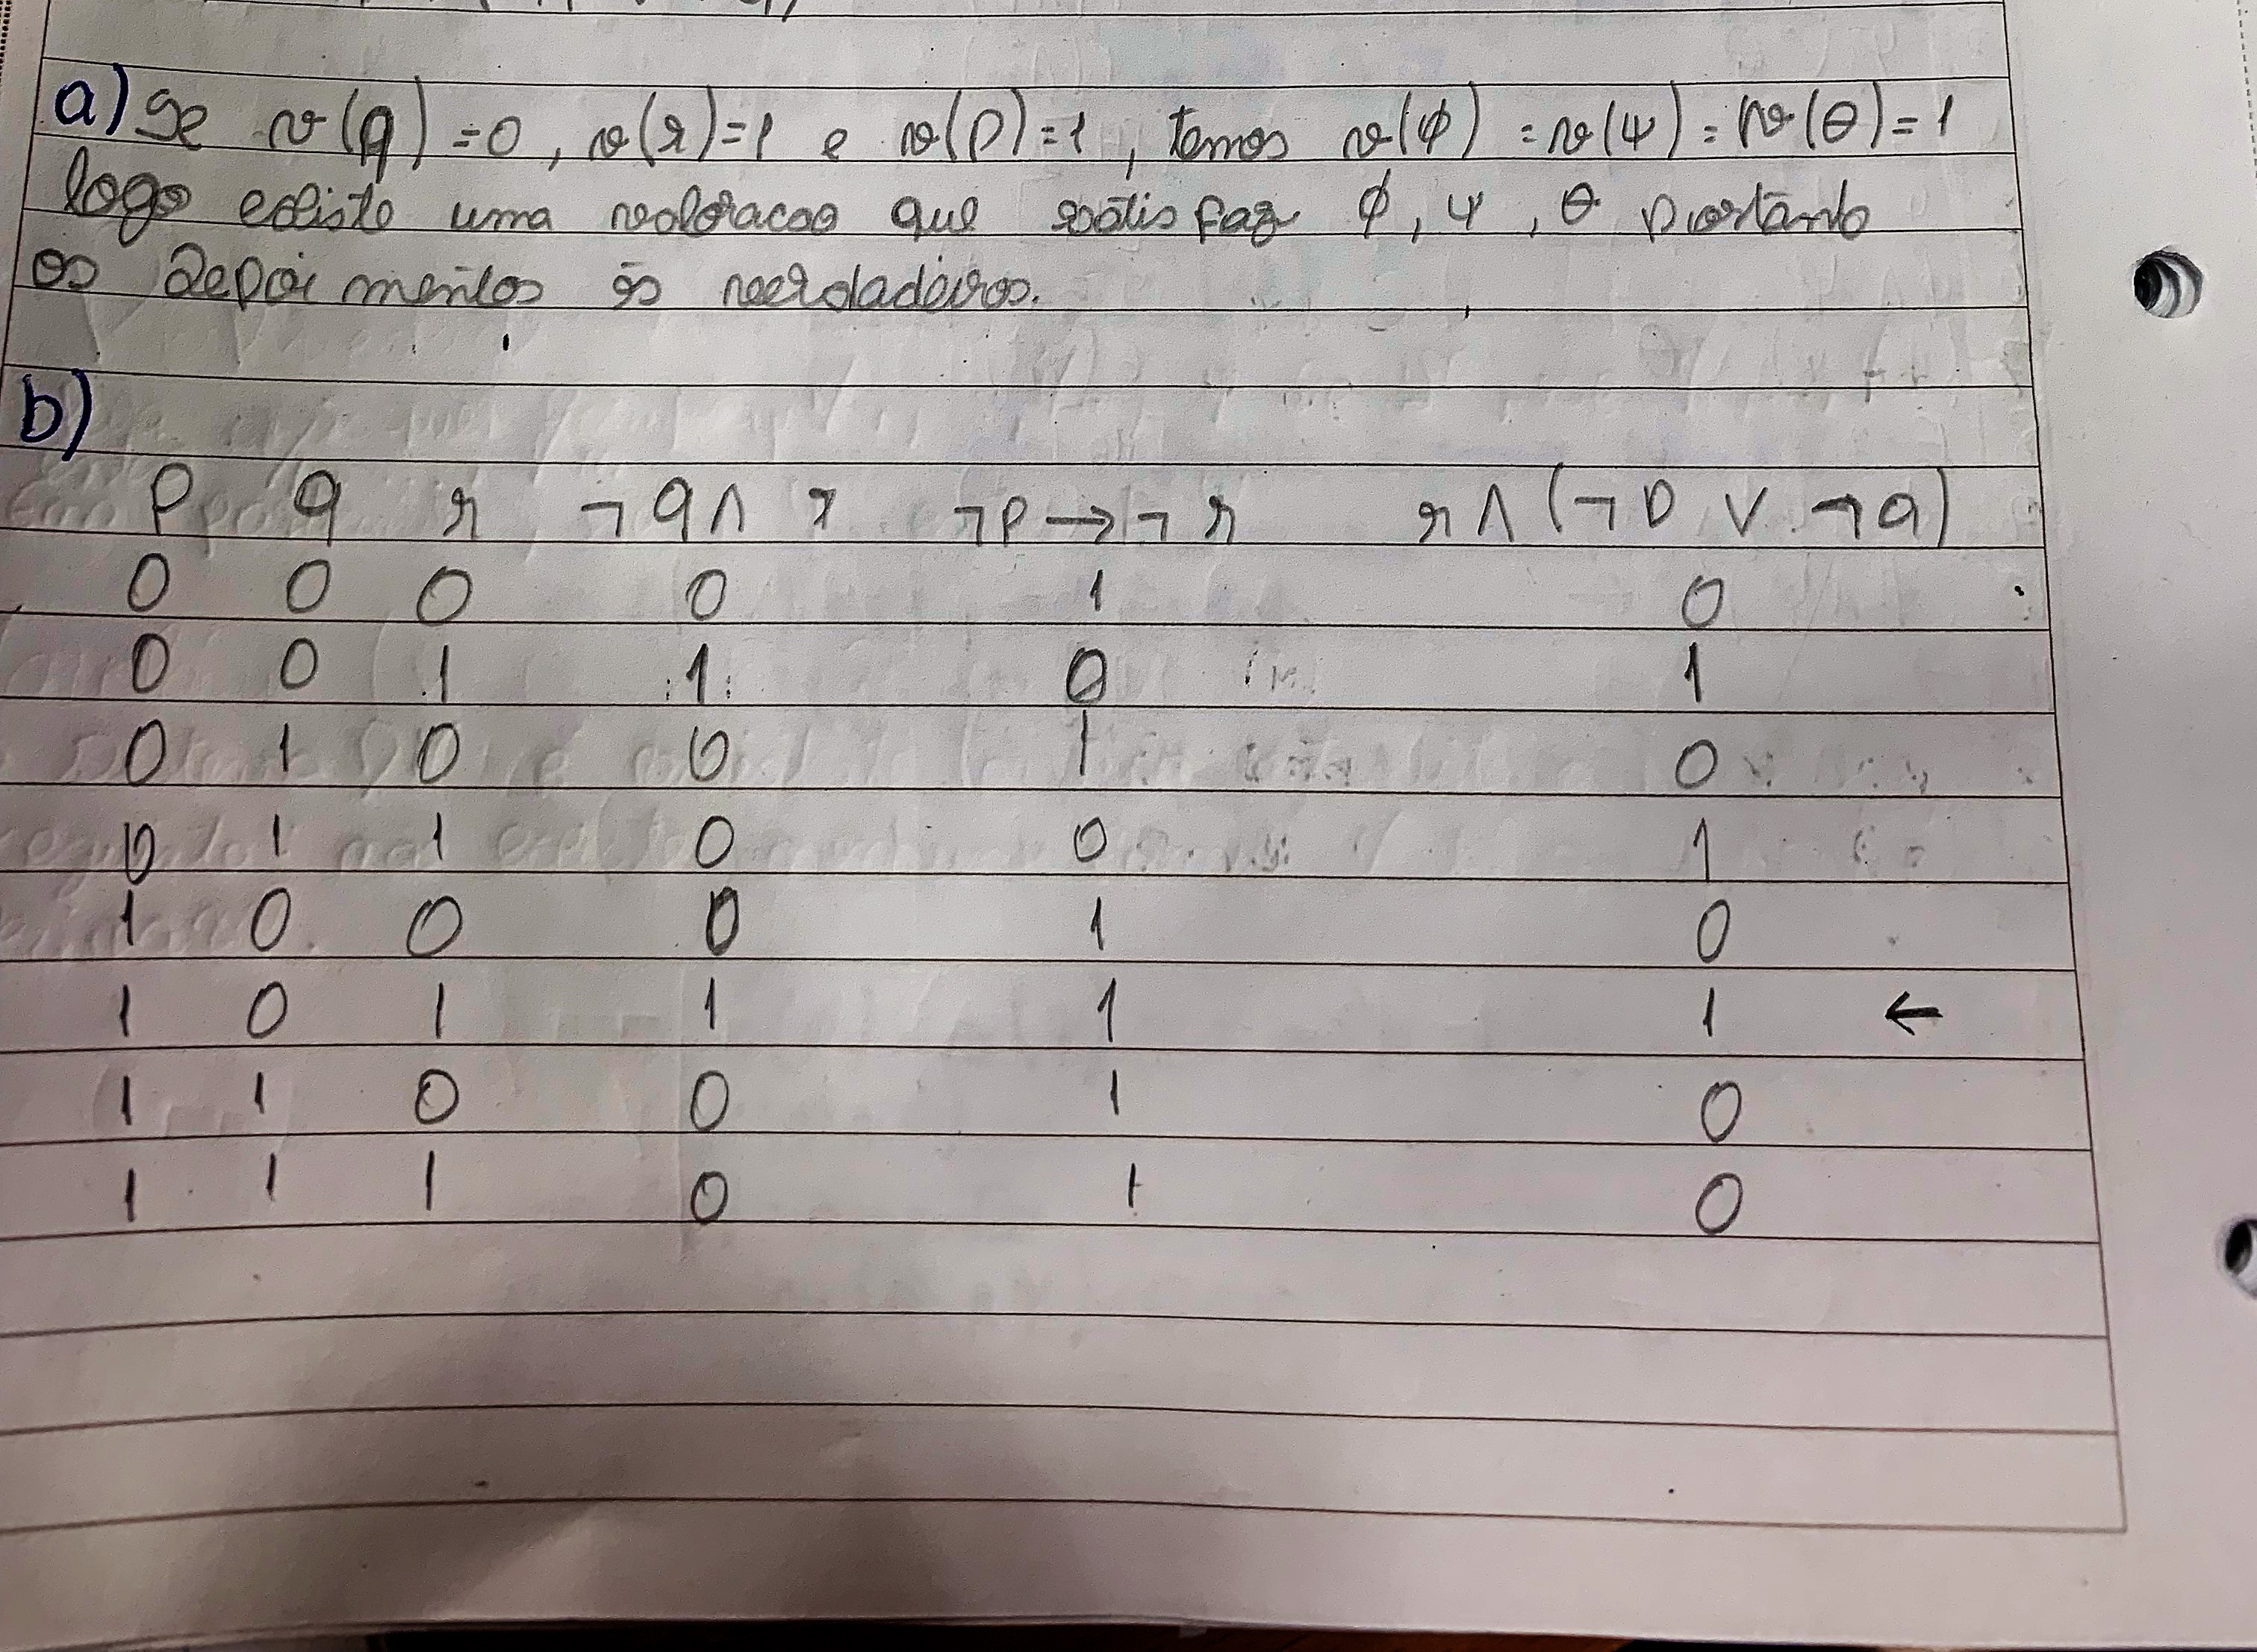 a) Se v(q) = 0, v(r) = 1 e v(p) = 1, temos v(φ) = v(ψ) = v(θ) = 1
logo existe uma valoracao que satisfaz φ, ψ, θ portanto
os depoimentos és verdadeiros.
b)
p q r ¬q∧r ¬p→¬r r∧(¬p∨¬q)
0 0 0 0 1 0
0 0 1 1 0 1
0 1 0 0 1 0
0 1 1 0 0 1
1 0 0 0 1 0
1 0 1 1 1 1 ←
1 1 0 0 1 0
1 1 1 0 1 0